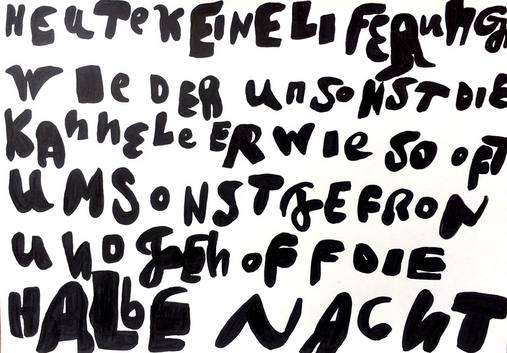 HEUTe KEINE LIFERUNG
WIeDER unSONST DIE
KAnnELe ER WIe SO OFT
UMSONST GEFRON
UND GEhOFF DIE
HALbE NACHT